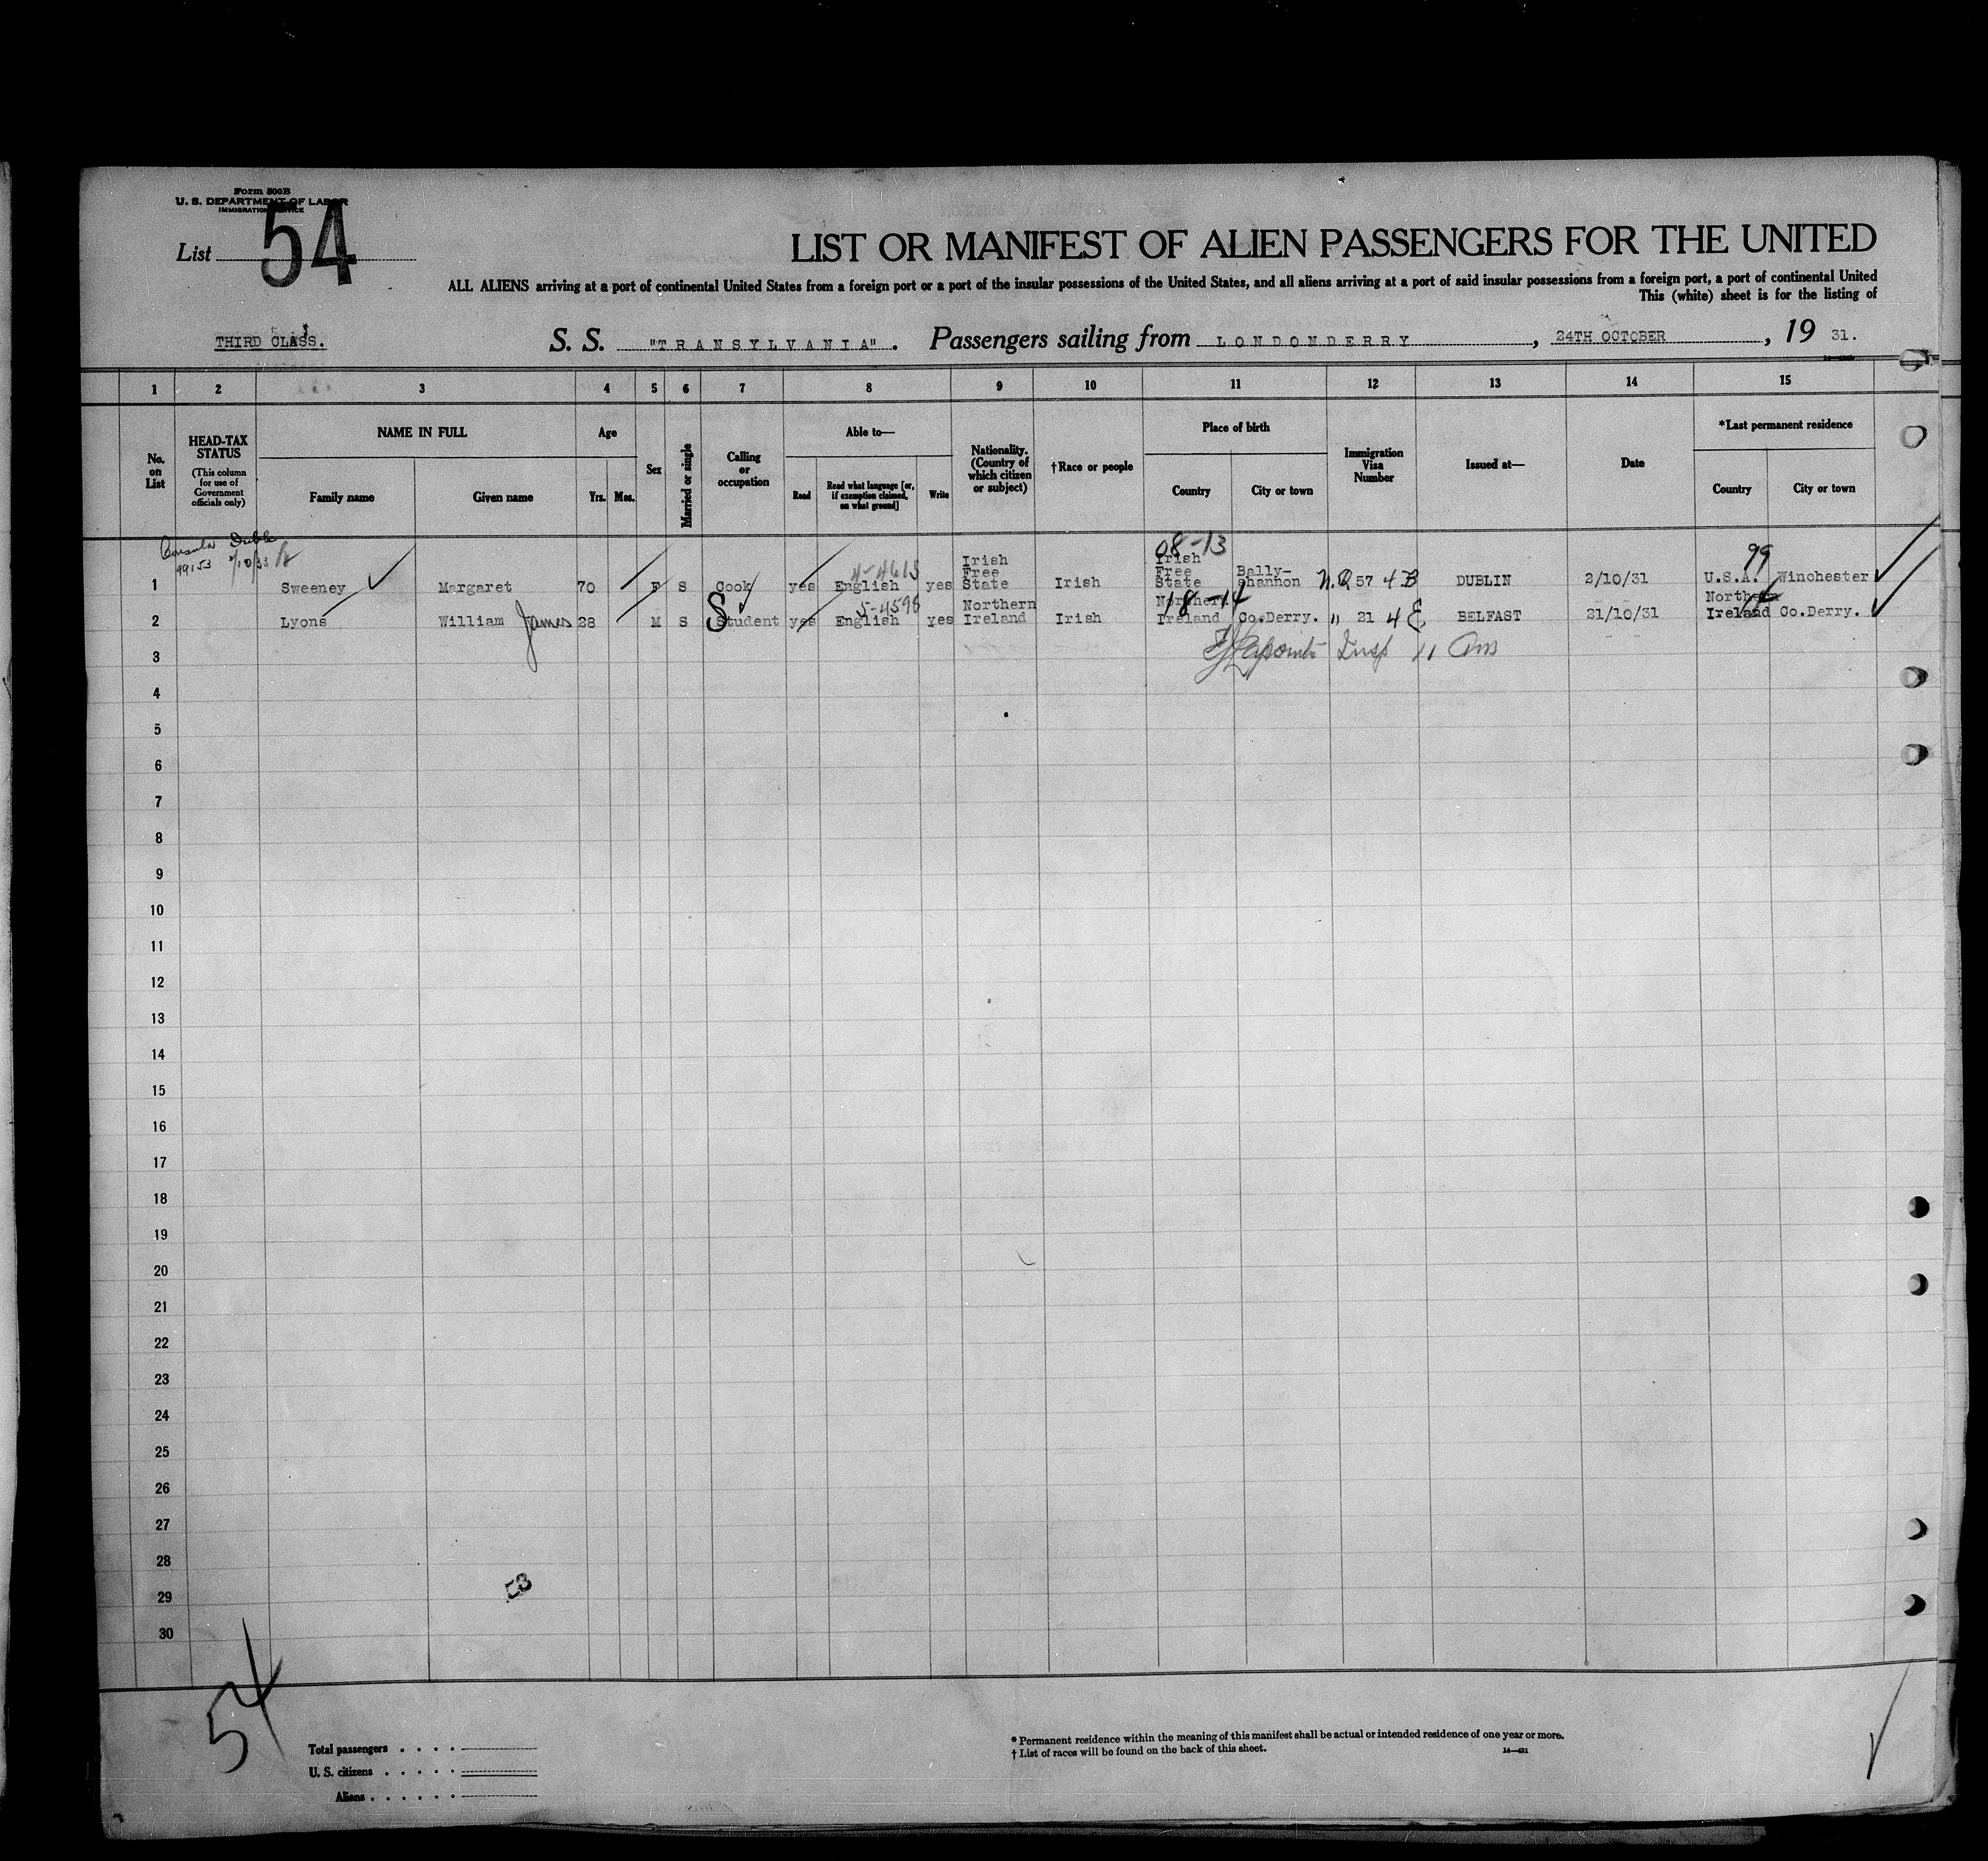 Form 500B
U. S. DEPARTMENT OF LABOR
IMMIGRATION SERVICE
List 54
LIST OR MANIFEST OF ALIEN PASSENGERS FOR THE UNITED
ALL ALIENS arriving at a port of continental United States from a foreign port or a port of the insular possessions of the United States, and all aliens arriving at a port of said insular possessions from a foreign port, a port of continental United
This (white) sheet is for the listing of
THIRD CLASS. S. S. "TRANSYLVANIA". Passengers sailing from LONDONDERRY, 24TH OCTOBER, 19 31.
1 2 3 4 5 6 7 8 9 10 11 12 13 14 15
No. on List
HEAD-TAX STATUS
(This column for use of Government officials only)
NAME IN FULL
Family name Given name
Age
Yrs. Mos.
Sex
Married or single
Calling or occupation
Able to—
Read Read what language [or, if exemption claimed, on what ground] Write
Nationality. (Country of which citizen or subject)
†Race or people
Place of birth
Country City or town
Immigration Visa Number
Issued at—
Date
*Last permanent residence
Country City or town
99153 2/10/33
08-13 99
4-4613
1 Sweeney Margaret 70 F S Cook yes English yes Irish Free State Irish Irish Free State Bally-shannon N.Q 57 4 B DUBLIN 2/10/31 U.S.A. Winchester
5-4596 18-14
2 Lyons William James 28 M S Student yes English yes Northern Ireland Irish Northern Ireland Co.Derry. " 21 4 E BELFAST 21/10/31 Northern Ireland Co.Derry.
3 Insp
4
5
6
7
8
9
10
11
12
13
14
15
16
17
18
19
20
21
22
23
24
25
26
27
28
29 53
30
54
Total passengers . . . .
U. S. citizens . . . . .
Aliens . . . . . .
* Permanent residence within the meaning of this manifest shall be actual or intended residence of one year or more.
† List of races will be found on the back of this sheet.
14—421